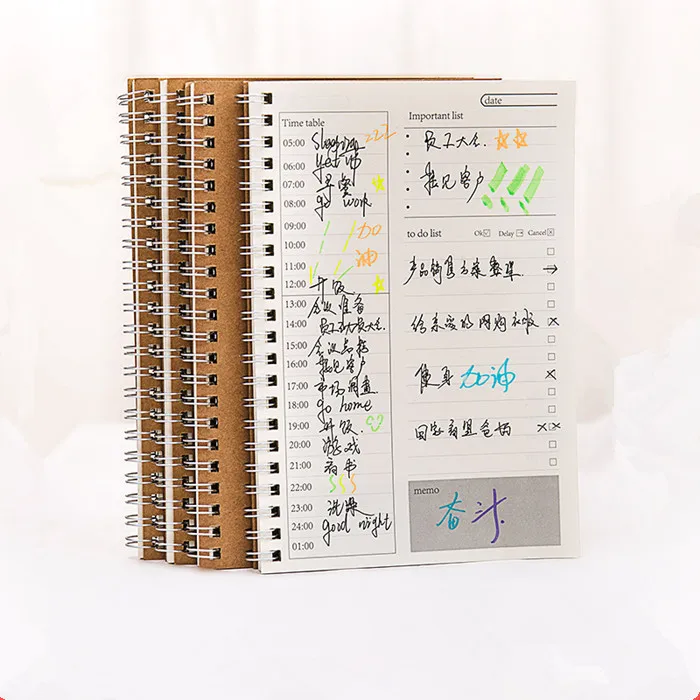 Time table
05:00 Sleeping zzz
06:00 get up
07:00 早餐
08:00 go work
09:00 加
10:00
11:00 油
12:00 开饭
13:00 会议准备
14:00 员工大会
15:00 会议
16:00 拜见客户
17:00 市场调查
18:00 go home
19:00 开饭
20:00 游戏
21:00 看书
22:00 SSS
23:00 洗澡
24:00 good night
01:00
date
Important list
员工大会
拜见客户
to do list Ok Delay Cancel
产品销售方案整理
给亲爱的网购衣服
健身 加油
回家看望爸妈
memo
奋斗